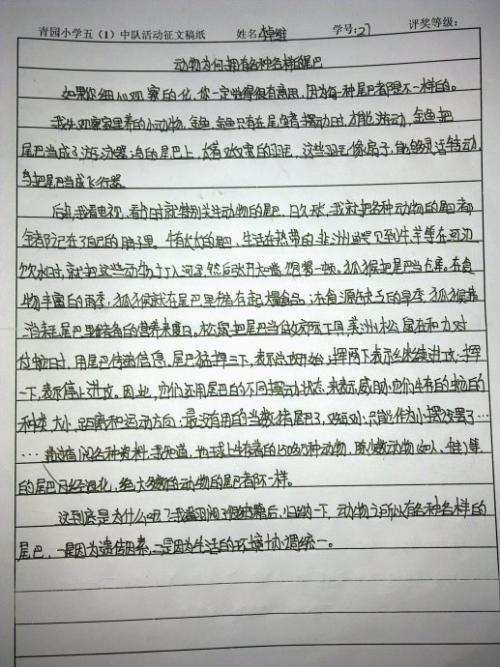 青园小学五（1）中队活动征文稿纸 姓名 学号：27 评奖等级：
动物为何拥有各种各样的尾巴
如果你细心观察的化，你一定觉得很有意思，因为每一种尾巴都是不一样的。
我先观察家里养的小动物，金鱼，金鱼只有在尾鳍摆动时，才能游动，金鱼把
尾巴当成了游泳器；鸟的尾巴上，长着密密的羽毛，这些羽毛像扇子，能够灵活转动，
鸟把尾巴当成飞行器。
后来，我看电视，看时就特别关注动物的尾巴，日久天长，我就把各种动物的尾巴都
全都记在了自己的脑子里。有长长的尾巴，生活在热带的非洲鳄见到牛羊等在河边
饮水时，就把这些动物打入河里，然后张开大嘴，饱餐一顿。狐猴把尾巴当仓库。在食
物丰富的雨季，狐猴就在尾巴里储存起食品；在食源缺乏的旱季，狐猴靠
消耗尾巴里储备的营养来度日。松鼠把尾巴当做交际工具，美洲松鼠在和力对
付蛇时，用尾巴传递信息，尾巴猛挥三下，表示总攻开始；挥两下表示继续进攻；挥
一下，表示停止进攻。因此，它们还用尾巴的不同摆动状态，来表示威胁它们生存的蛇的
种类、大小、距离和运动方向；最没有用的当数猪尾巴了，又短又小，只能作为小摆设罢了…
…通过查阅各种资料，我知道，地球上生存着的150多万种动物，除少数动物（如人、蛙）等
的尾巴已经退化，绝大多数的动物的尾巴都不一样。
这到底是为什么呢？我翻阅了很多书籍后，归纳一下，动物之所以有各种各样的
尾巴，一是因为遗传因素，二是因为生活的环境协调统一。